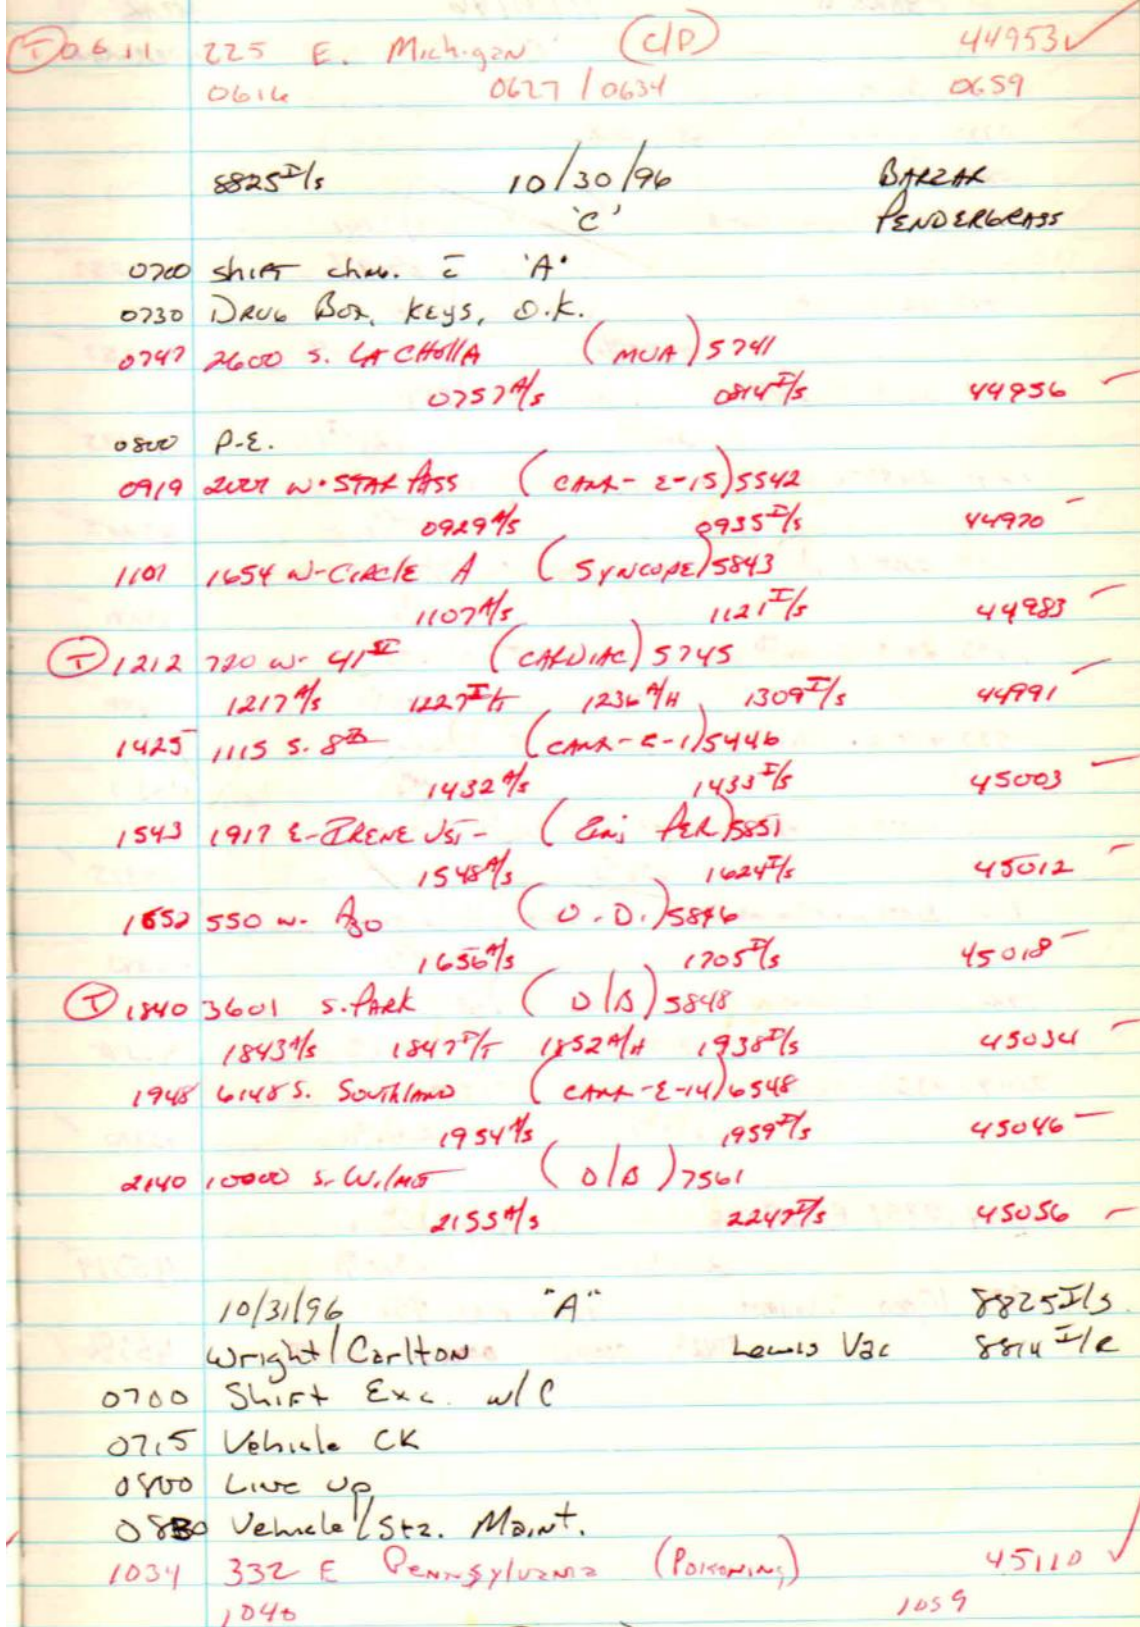 (T) 0611 225 E. Michigan (C/P) 44953✓
0616 0627 / 0634 0659
8825 I/S 10/30/96 BARZAR
'C' PENDERGRASS
0700 Shift chng. c̄ 'A'
0730 Drug Box, Keys, O.K.
0747 2600 S. LA CHOLLA (MVA) 5741
0757 A/S 0814 I/S 44956
0800 P.E.
0919 W. STAR PASS (CANX-E-15) 5542
0929 A/S 0935 I/S 44970
1101 1654 W-CIRCLE A (SYNCOPE) 5843
1107 A/S 1121 I/S 44983
(T) 1212 720 W. 41ST (CARDIAC) 5745
1217 A/S 1227 I/T 1236 A/H 1309 I/S 44991
1425 1115 S. 8TH (CANX-E-1) 5446
1432 A/S 1433 I/S 45003
1543 1917 E-IRENE (Inj PER) 5851
1548 A/S 1624 I/S 45012
1652 550 W. Ajo (O.D.) 5846
1656 A/S 1705 I/S 45018
(T) 1840 3601 S. PARK (D/B) 5848
1843 A/S 1847 I/T 1852 A/H 1938 I/S 45034
1948 6148 S. Southland (CANX-E-14) 6548
1954 A/S 1959 I/S 45046
2140 10000 S. Wilmot (D/B) 7561
2155 A/S 2247 I/S 45056
10/31/96 "A" 8825 I/S
Wright / Carlton Lewis Vac 8814 I/R
0700 Shift Exc. w/ C
0715 Vehicle CK
0800 Line Up
0830 Vehicle / Sta. Maint.
1034 332 E Pennsylvania (Poisoning) 45110 ✓
1040 1059